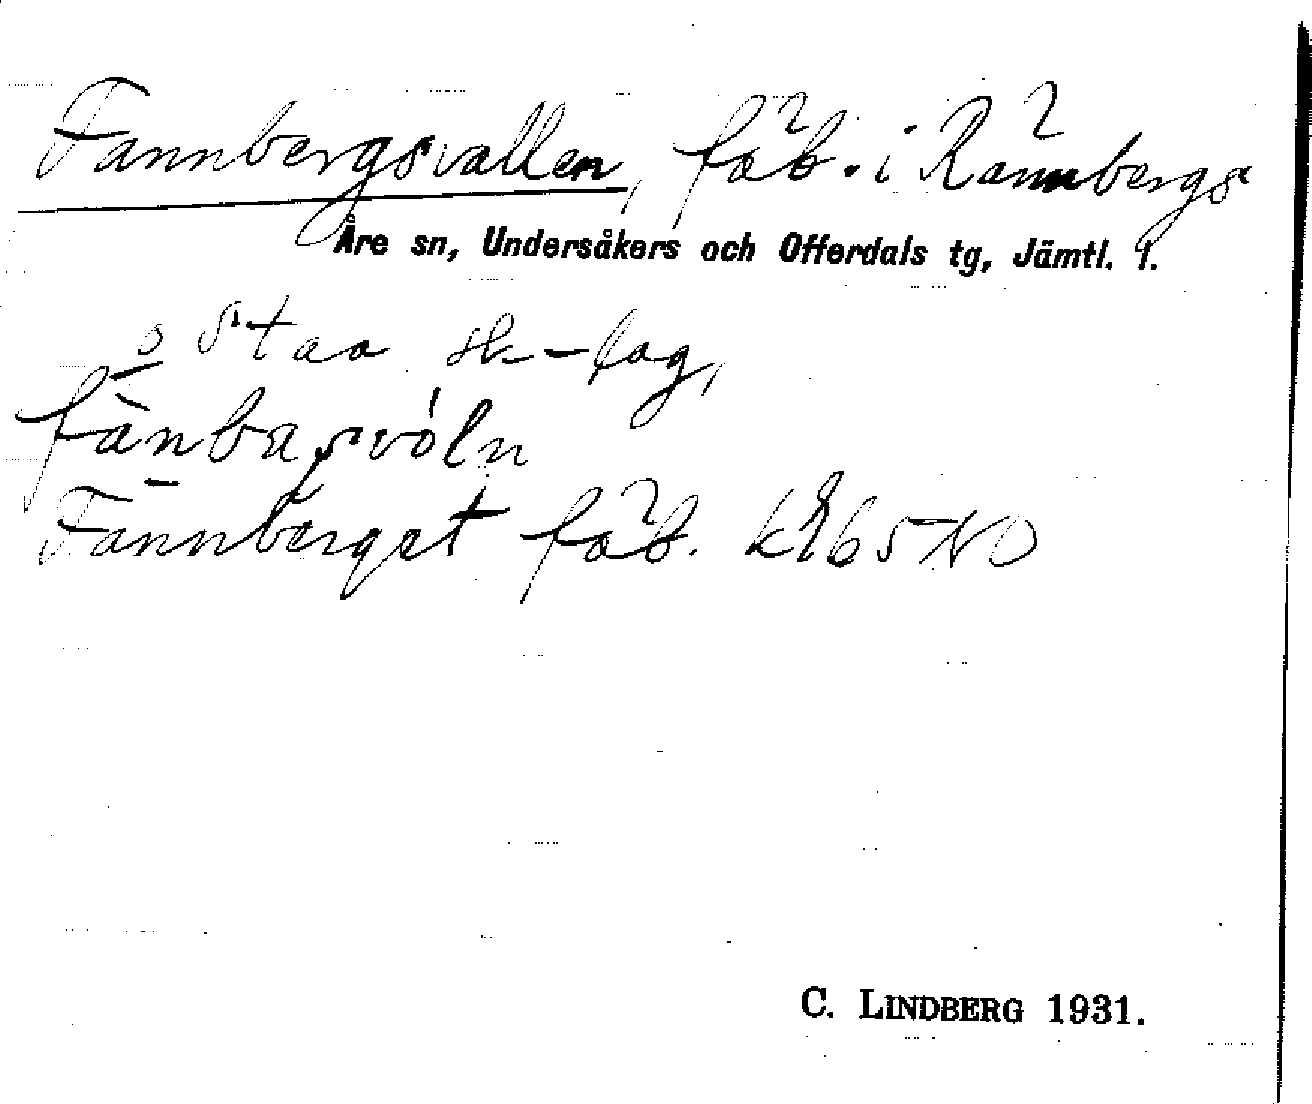 Fannbergsvallen, fäb. i Rännbergs
Åre sn, Undersåkers och Offerdals tg, Jämtl. l.
o Staa sk-lag,
fànbasvóln
Fannberget fäb. kg 65 NO
C. LINDBERG 1931.